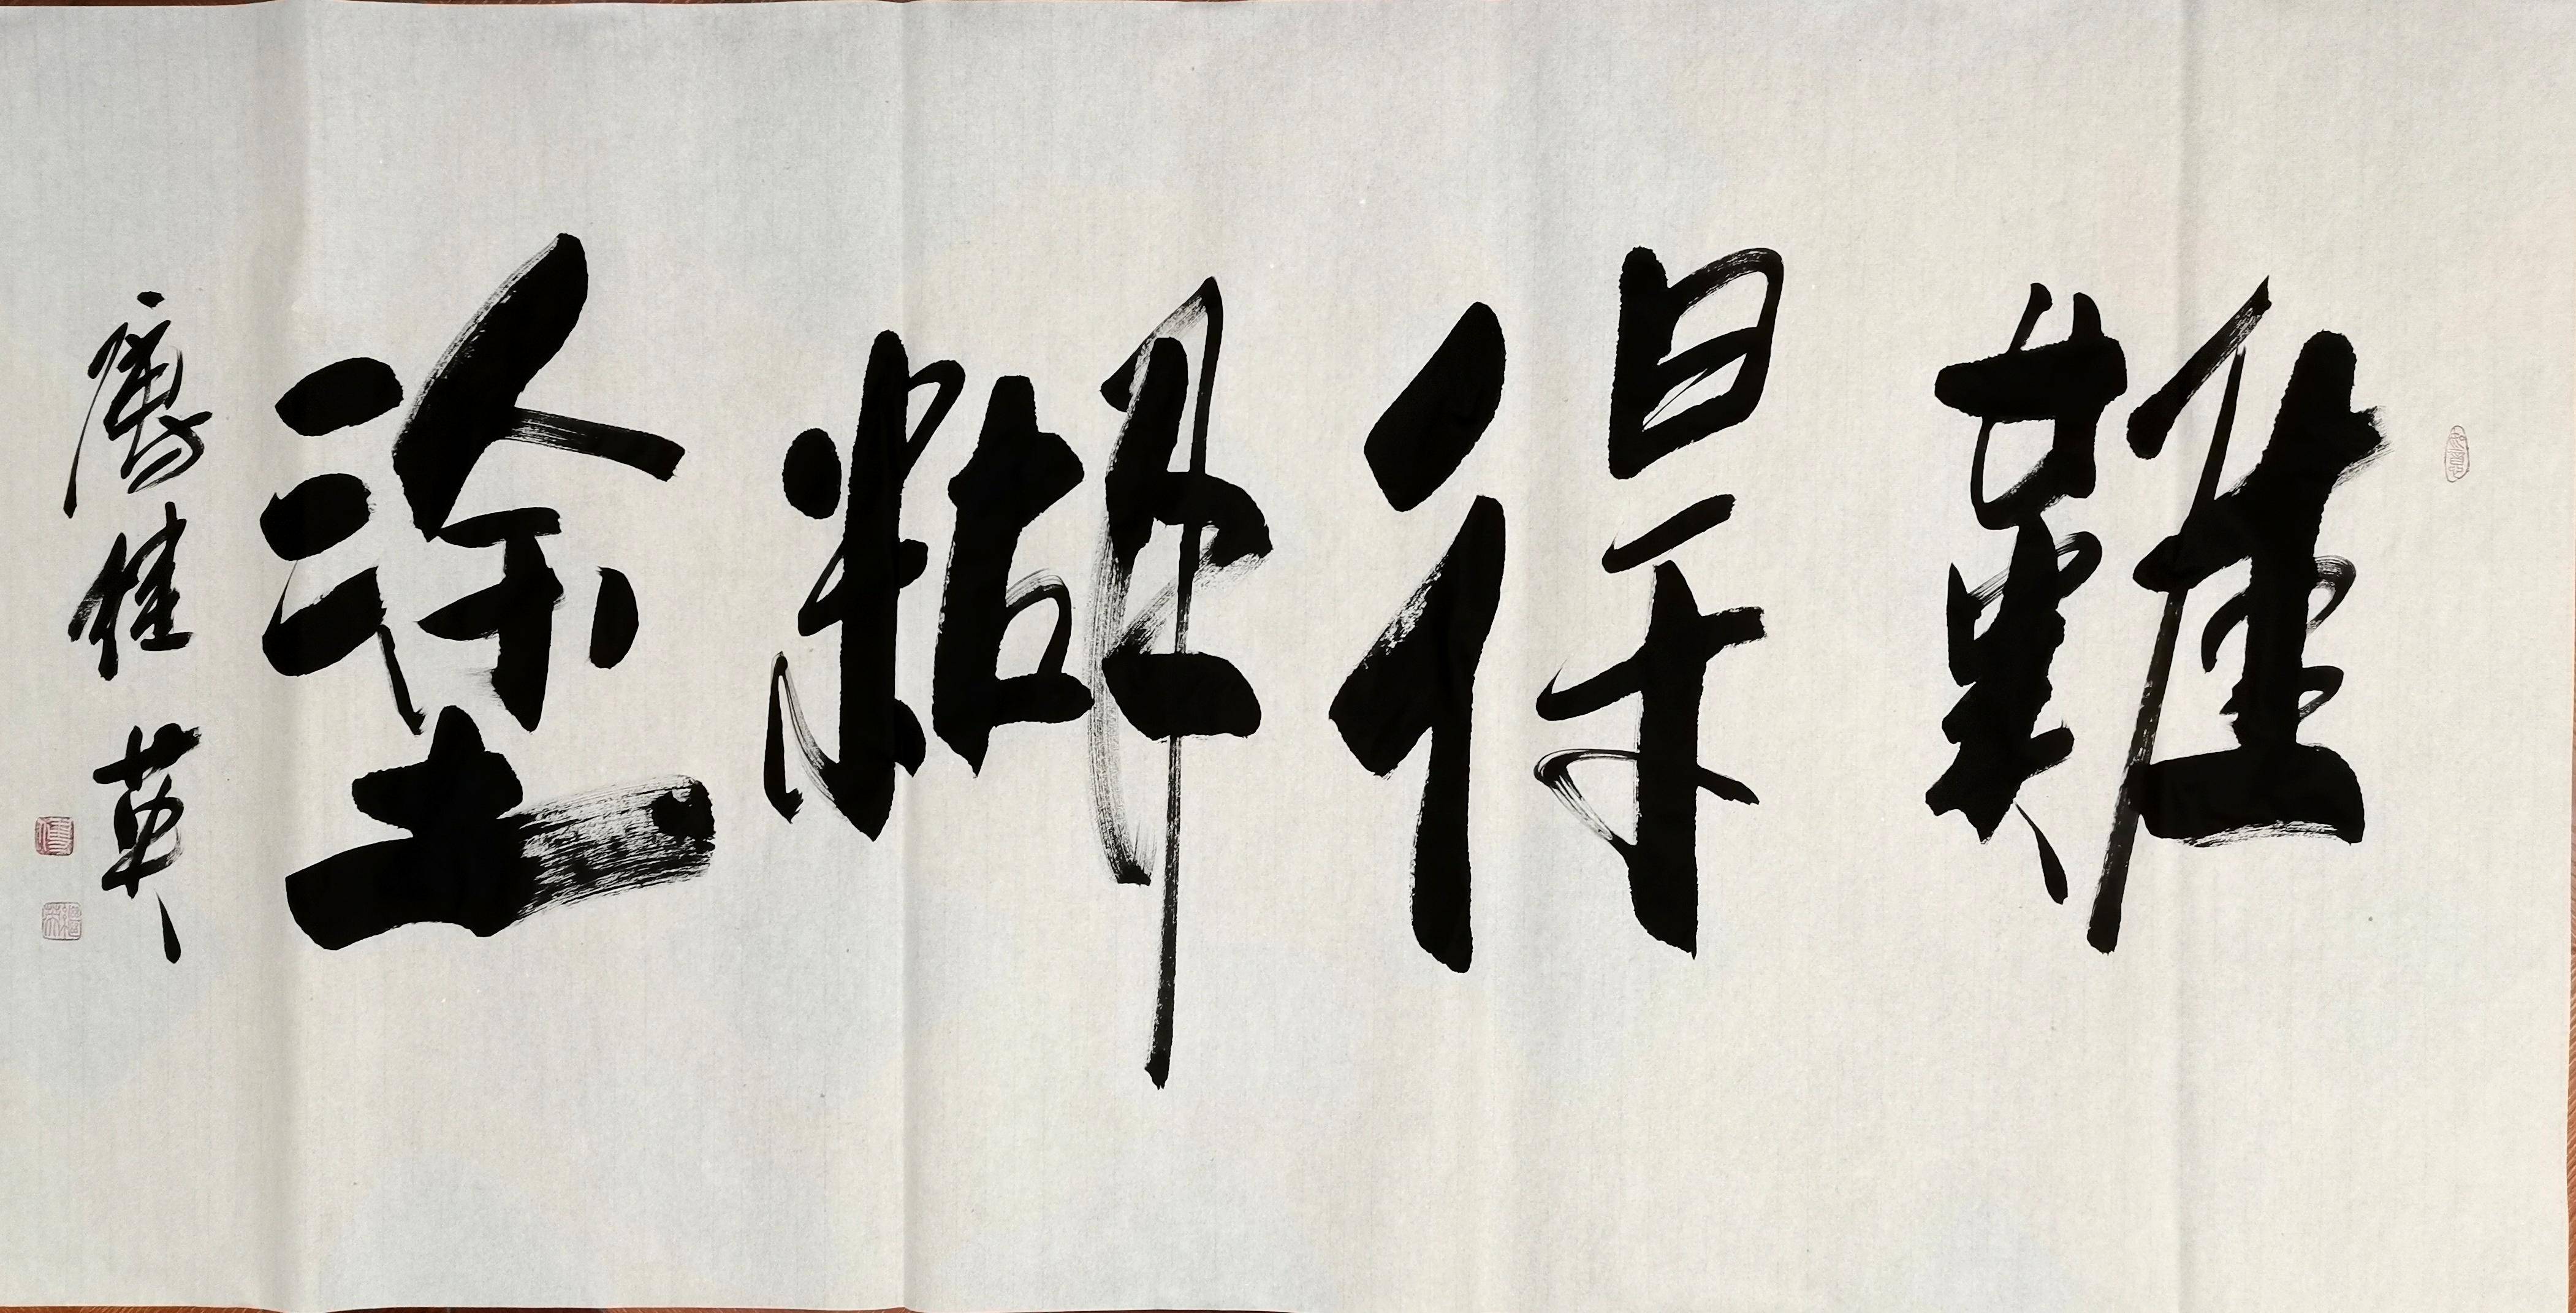 難得糊塗
桂英